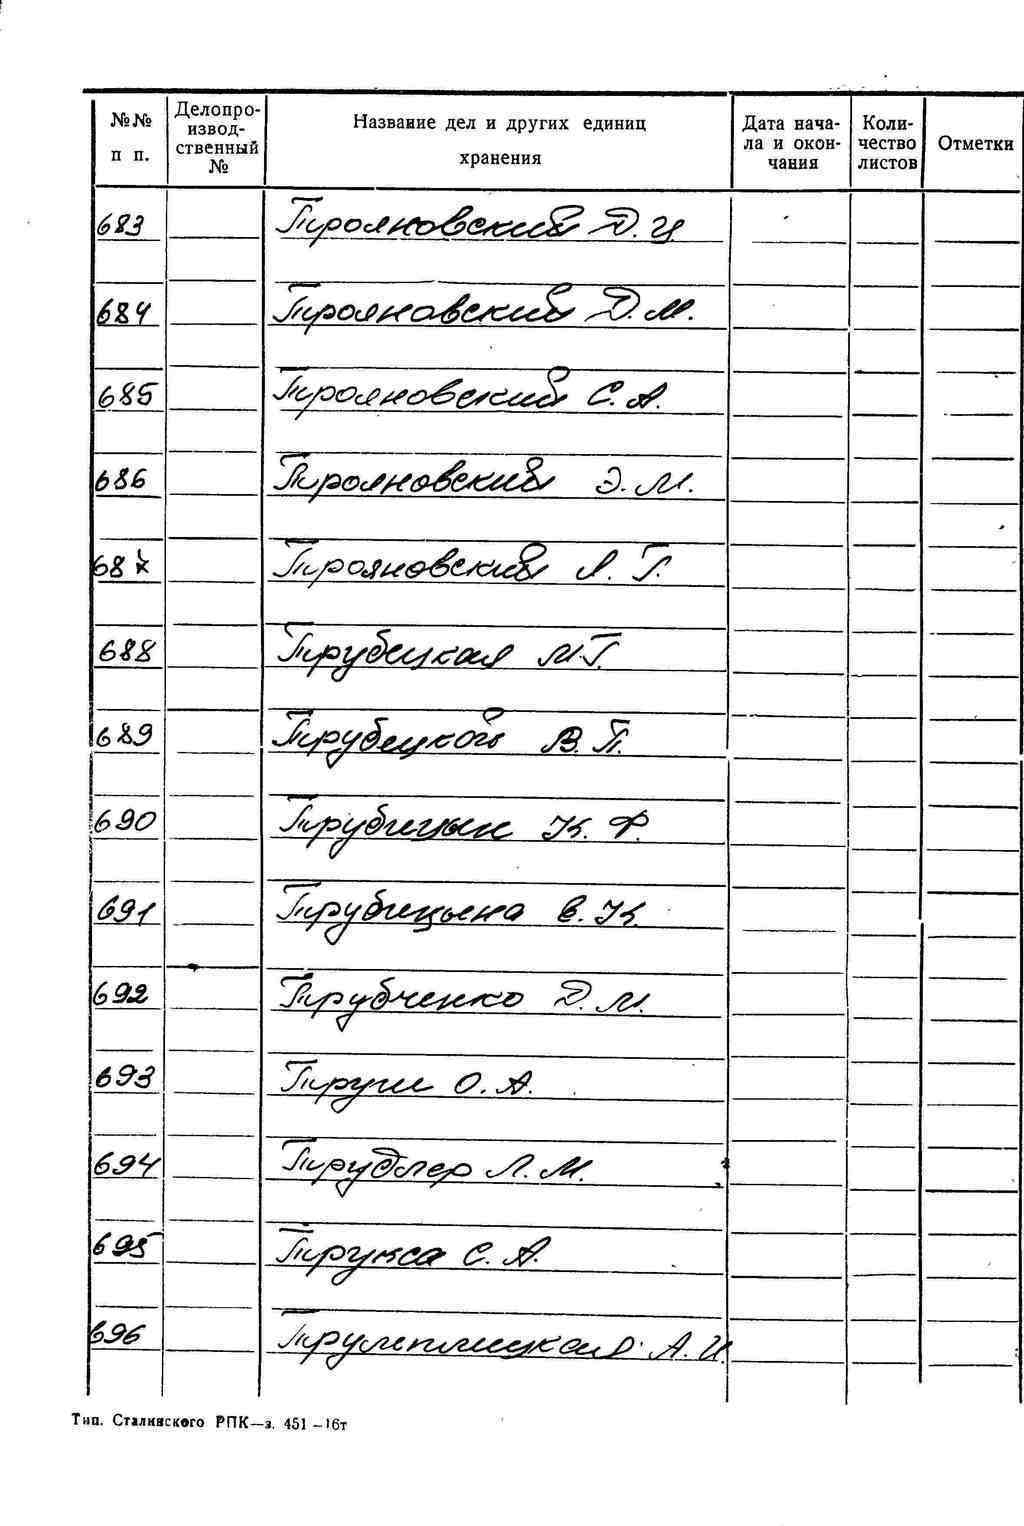 №№ п п.
Делопроизводственный №
Название дел и других единиц хранения
Дата начала и окончания
Количество листов
Отметки
683 Трояновский Д. И.
684 Трояновский Д. М.
685 Трояновский С. А.
686 Трояновский Э. М.
687 Трояновский Я. Г.
688 Трубецкая М. Г.
689 Трубецкой В. П.
690 Трубицын К. Ф.
691 Трубицына Е. К.
692 Трубченко Д. М.
693 О. А.
694 Трудлер Л. М.
695 Трукса С. А.
696 А. И.
Тип. Сталинского РПК—з. 451 —16т